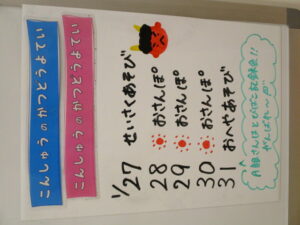 こんしゅうのかつどうよてい
こんしゅうのかつどうよてい
1/27 せいさくあそび
28 おさんぽ
29 おさんぽ
30 おさんぽ
31 おへやあそび
さんはとびばこ記録会!!
がんばれ〜